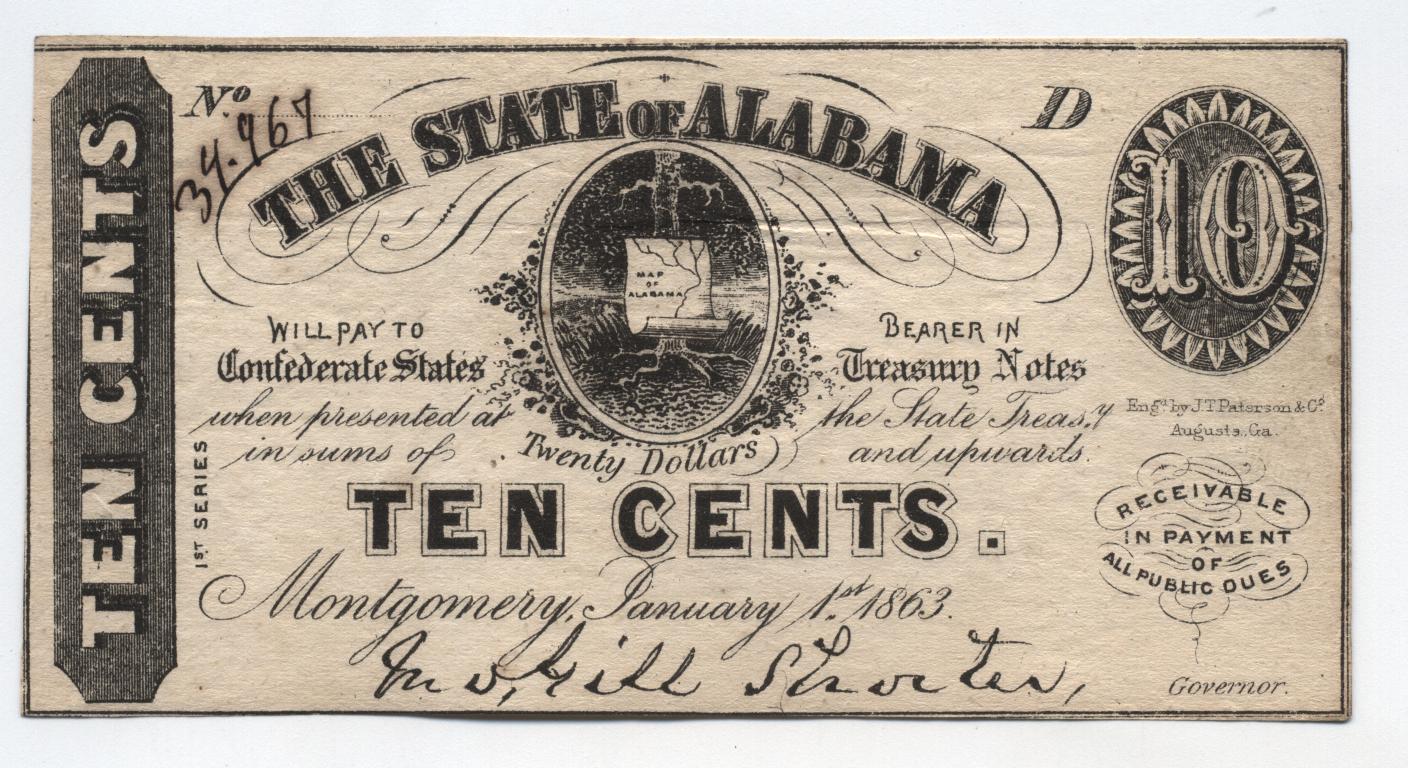 TEN CENTS
No. 34.967
D
THE STATE OF ALABAMA
10
MAP
OF
ALABAMA
WILL PAY TO BEARER IN
Confederate States Treasury Notes
when presented at the State Treas.y
in sums of Twenty Dollars and upwards.
Engd. by J.T. Paterson & Co.
Augusta, Ga.
1ST SERIES
TEN CENTS.
RECEIVABLE
IN PAYMENT
OF
ALL PUBLIC DUES
Montgomery, January 1st 1863.
Jno. Gill Shorter,
Governor.